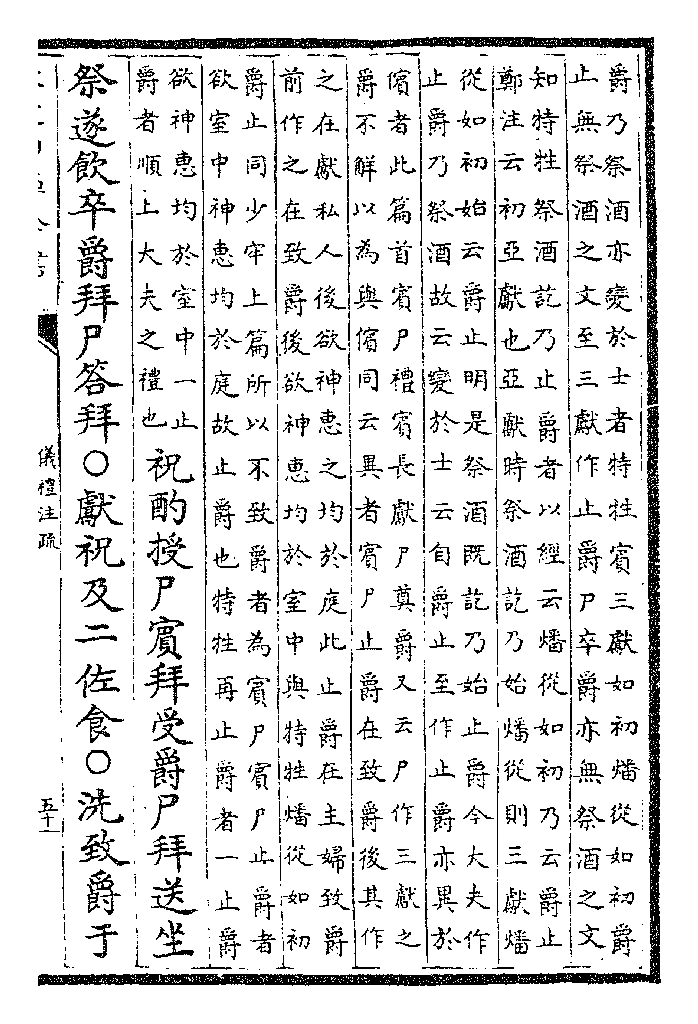 爵乃祭酒亦變於士者特牲賓三獻如初燔從如初爵
止無祭酒之文至三獻作止爵尸卒爵亦無祭酒之文
知特牲祭酒訖乃止爵者以經云燔從如初乃云爵止
鄭注云初亞獻也亞獻時祭酒訖乃始燔從則三獻燔
從如初始云爵止明是祭酒既訖乃始止爵今大夫作
止爵乃祭酒故云變於士云自爵止至作止爵亦異於
儐者此篇首賓尸禮賓長獻尸奠爵又云尸作三獻之
爵不觧以為與儐同云異者賓尸止爵在致爵後其作
之在獻私人後欲神惠之均於庭此止爵在主婦致爵
前作之在致爵後欲神惠均於室中與特牲燔從如初
爵止同少牢上篇所以不致爵者為賓尸賓尸止爵者
欲室中神惠均於庭故止爵也特牲再止爵者一止爵
欲神惠均於室中一止
爵者順上大夫之禮也
祝酌授尸賓拜受爵尸拜送坐
祭遂飲卒爵拜尸答拜○獻祝及二佐食○洗致爵于
儀禮注疏
五十一